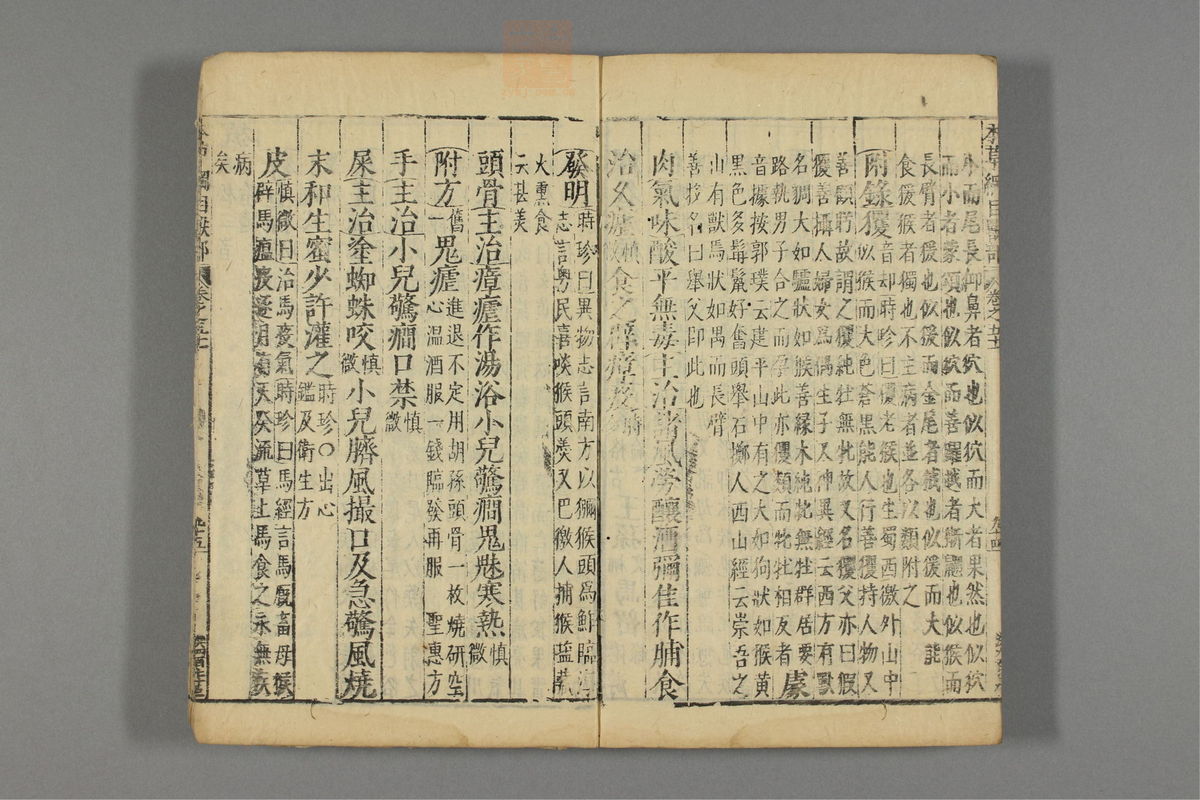 小而尾長仰鼻者狖也似狖而大者果然也似狖
而小者蒙頌也似狖而善躍越者獑䶉也似猴而
長臂者猨也似猨而金尾者狨也似猨而大能
食猨猴者獨也不主病者並各以類附之
附錄玃音却時珍曰玃老猴也生蜀西徼外山中
似猴而大色蒼黑能人行善攫持人物又
善顧盼故謂之玃純牡無牝故又名玃父亦曰猳
玃善攝人婦女為偶生子又神異經云西方有獸
名猳大如驢狀如猴善緣木純牝無牡群居要
路執男子合之而孕此亦玃類而牝牡相反者 豦
音據按郭璞云建平山中有之大如狗狀如猴黃
黑色多髯鬣好奮頭舉石擲人西山經云崇吾之
山有獸焉狀如禺而長臂
善投名曰舉父即此也
肉氣味酸平無毒主治諸風勞釀酒彌佳作脯食
治久瘧慎微食之辟瘴疫
發明時珍曰異物志言南方以獼猴頭為鮓臨海
志言粵民喜啖猴頭羹又巴徼人捕猴鹽藏
火熏食
云甚美
頭骨主治瘴瘧作湯浴小兒驚癇鬼魅寒熱慎微
附方舊一鬼瘧進退不定用胡孫頭骨一枚燒研空
心溫酒服一錢臨發再服 聖惠方
手主治小兒驚癇口禁慎微
屎主治塗蜘蛛咬慎微小兒臍風撮口及急驚風燒
末和生蜜少許灌之時珍○出心
鑑及衛生方
皮慎微曰治馬疫氣時珍曰馬經言馬廄畜母猴
辟馬瘟疫逐月有天癸流草上馬食之永無疾
病
矣